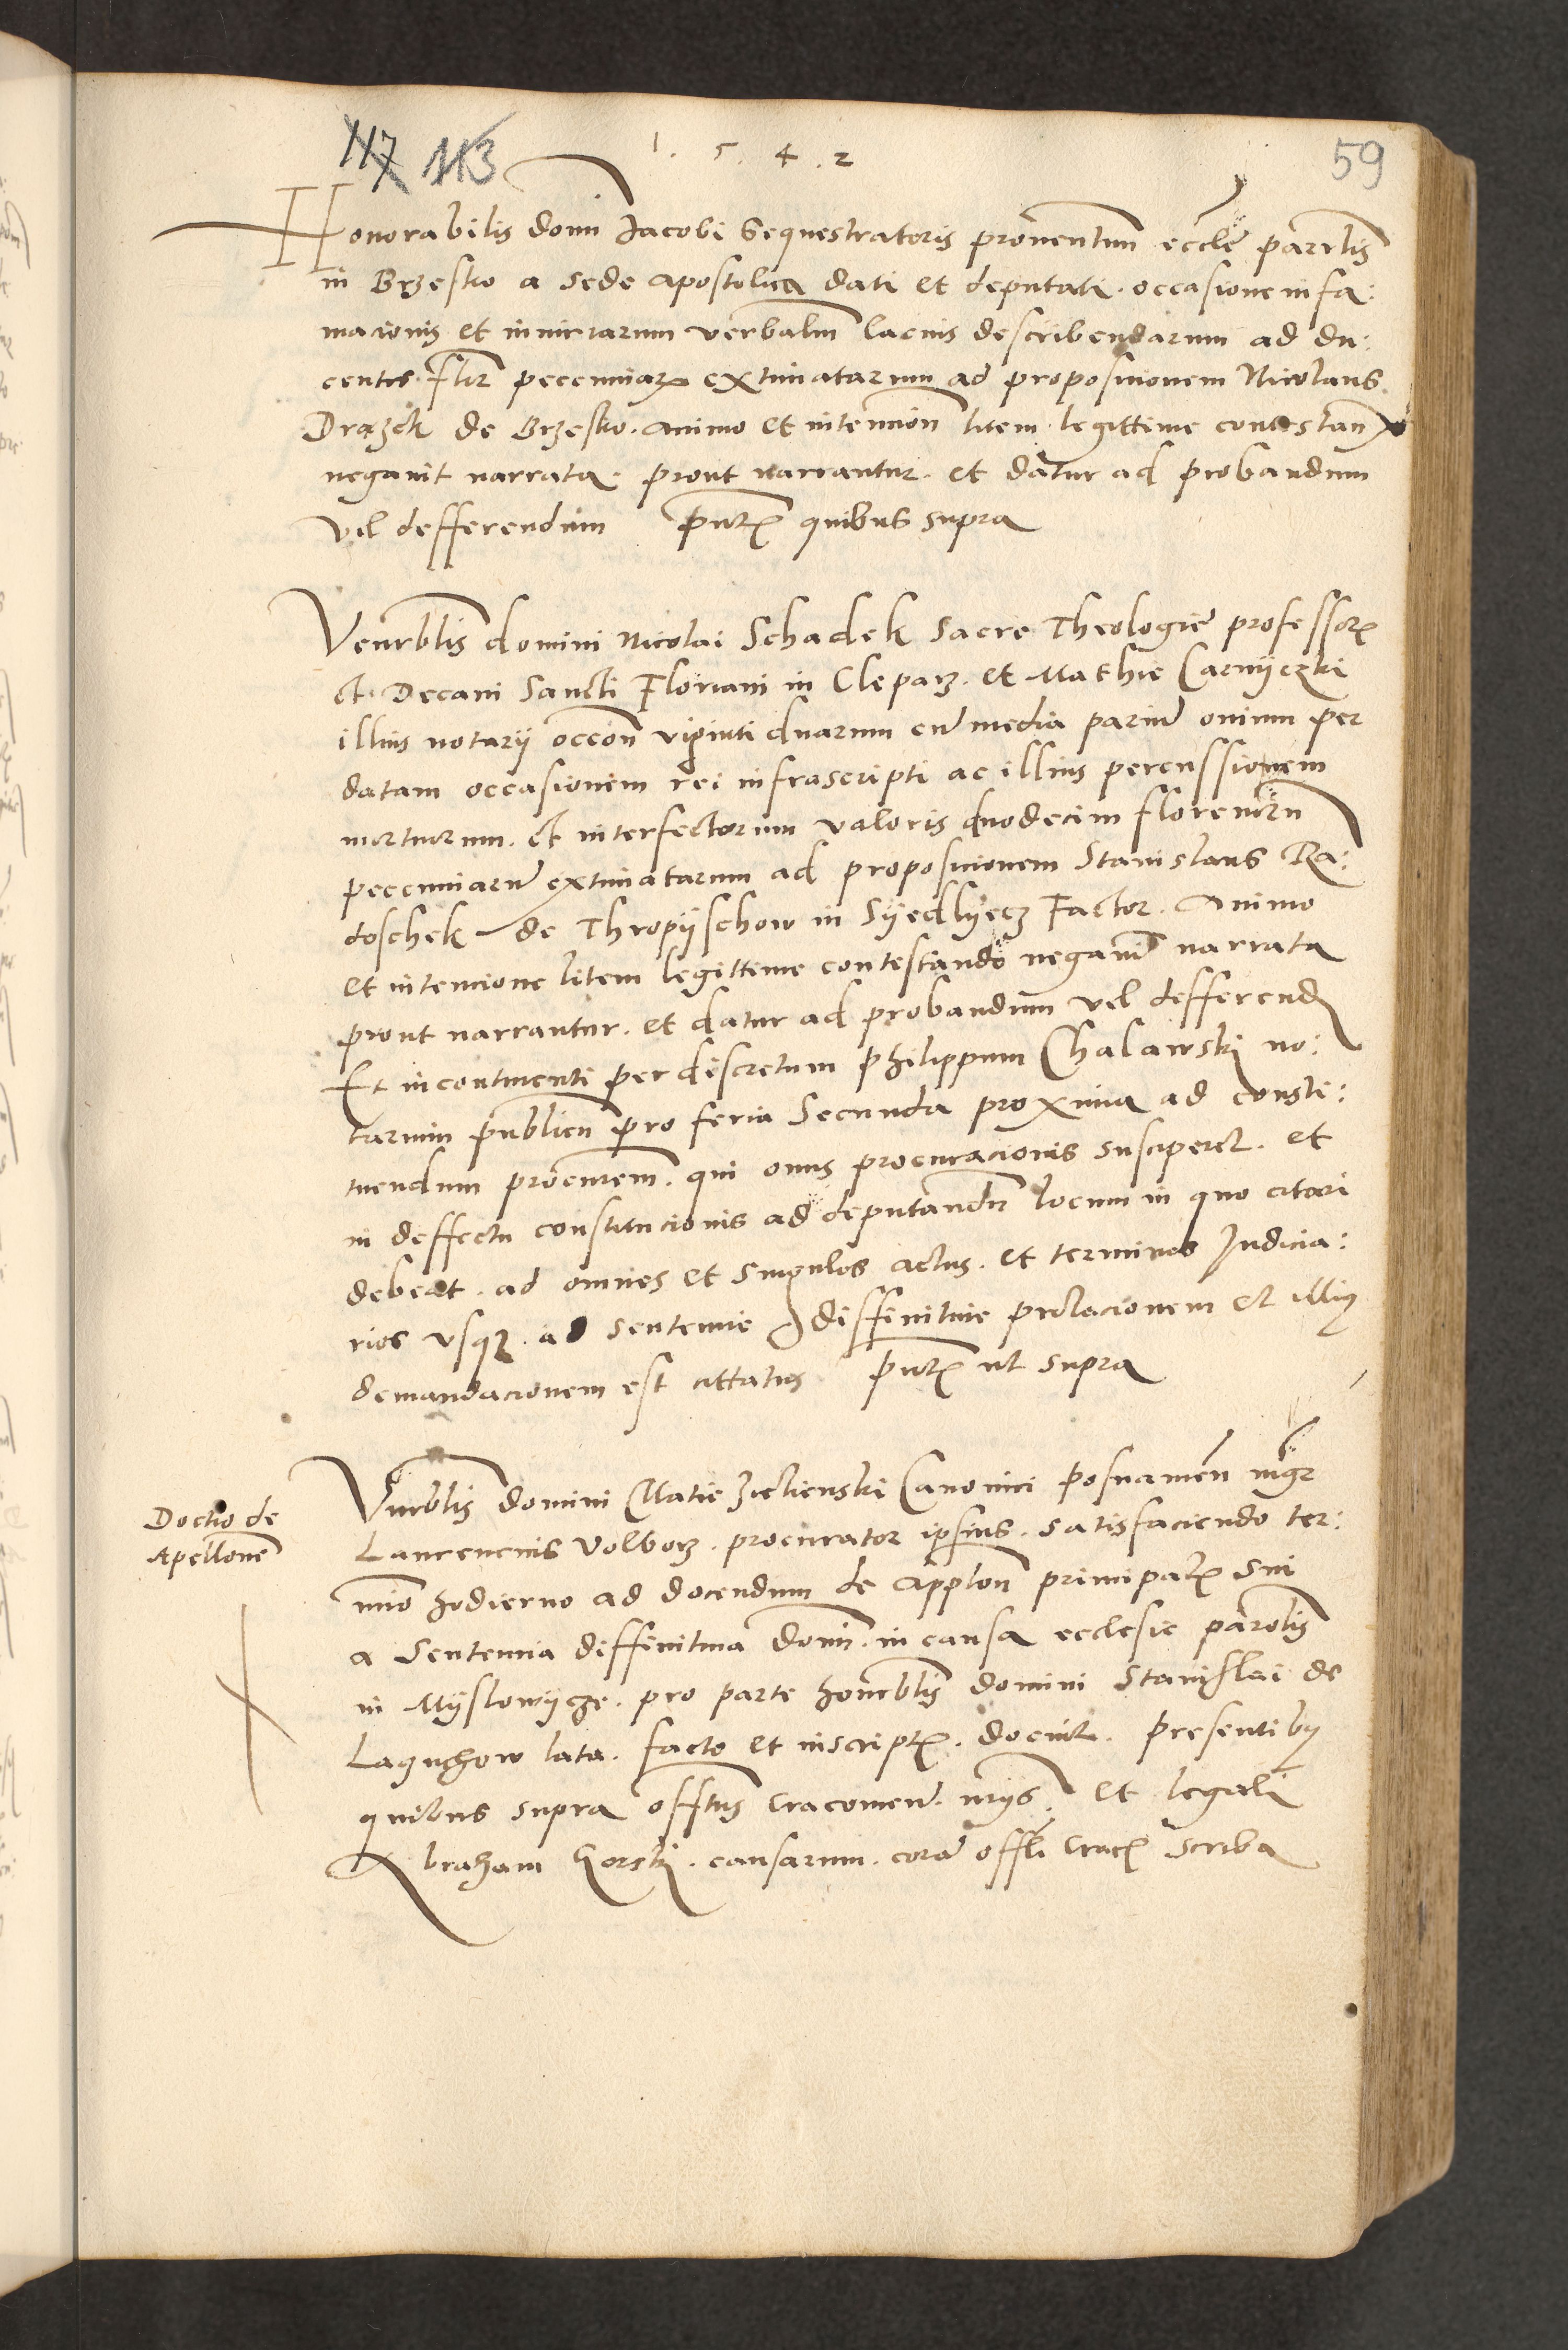 117 113 1. 5. 4. 2 59
Honorabilis domi Jacobi Sequestratoris proventuum eccle parrlis
in Brzesko a sede apostolica dati et deputati. occasione infa:
macionis et iniuriarum verbalm lacius describendarum ad du:
centos flor pecuniar extimatarum ad proposicionem Nicolaus
Drązek de Brzesko. animo et intencion litem legittime contestan
negavit narrata. prout narrantur. et datur ad probandum
vel defferendum pntz quibus supra
Venrblis domini Nicolai Schadek Sacre Theologie professorz
et Decani Sancti Floriani in Cleparz. et Mathie Carnyczki
illius notarij occon viginti duarum cum media parium ovium per
datam occasionem rei infrascripti ac illius percussionem
mortuorum. et interfectorum valoris duodecim florenorum
peccuniarum extimatarum ad proposicionem Stanislaus Ra:
doschek de Thropijschow in Syedlyecz Factor. Animo
et intencione litem legittime contestando negavit narrata
prout narrantur. et datur ad probandum vel defferend
Et incontinenti per discretum philippum Chalawski no:
tarium publicu pro feria Secunda proxima ad consti:
tuendum procurem. qui onus procuracionis susciperet. et
in deffectu constitucionis ad deputandu locum in quo citari
debeat. ad omnes et singulos actus. et terminos Judicia:
rios usqz. ad sentencie diffinitive prolacionem et illius
demandacionem est cittatus pntz ut supra
Doctio de
Apellone
Vnrblis domini Matie Zielienski Canonici posnanien mgr
Laurencius Volborz. procurator ipsius. satisfaciendo ter:
mio hodierno ad docendum de applon principalz sui
a sentencia diffinitiva domi. in causa ecclesie parrolis
in Myslowycze. pro parte honrblis domini Stanislai de
Lagnschow lata. facto et inscriptz. docuit. presentibus
quibus supra offtus Cracovien. nrys et legali
Abraham Gorski. causarum. cora offli Cracz scriba